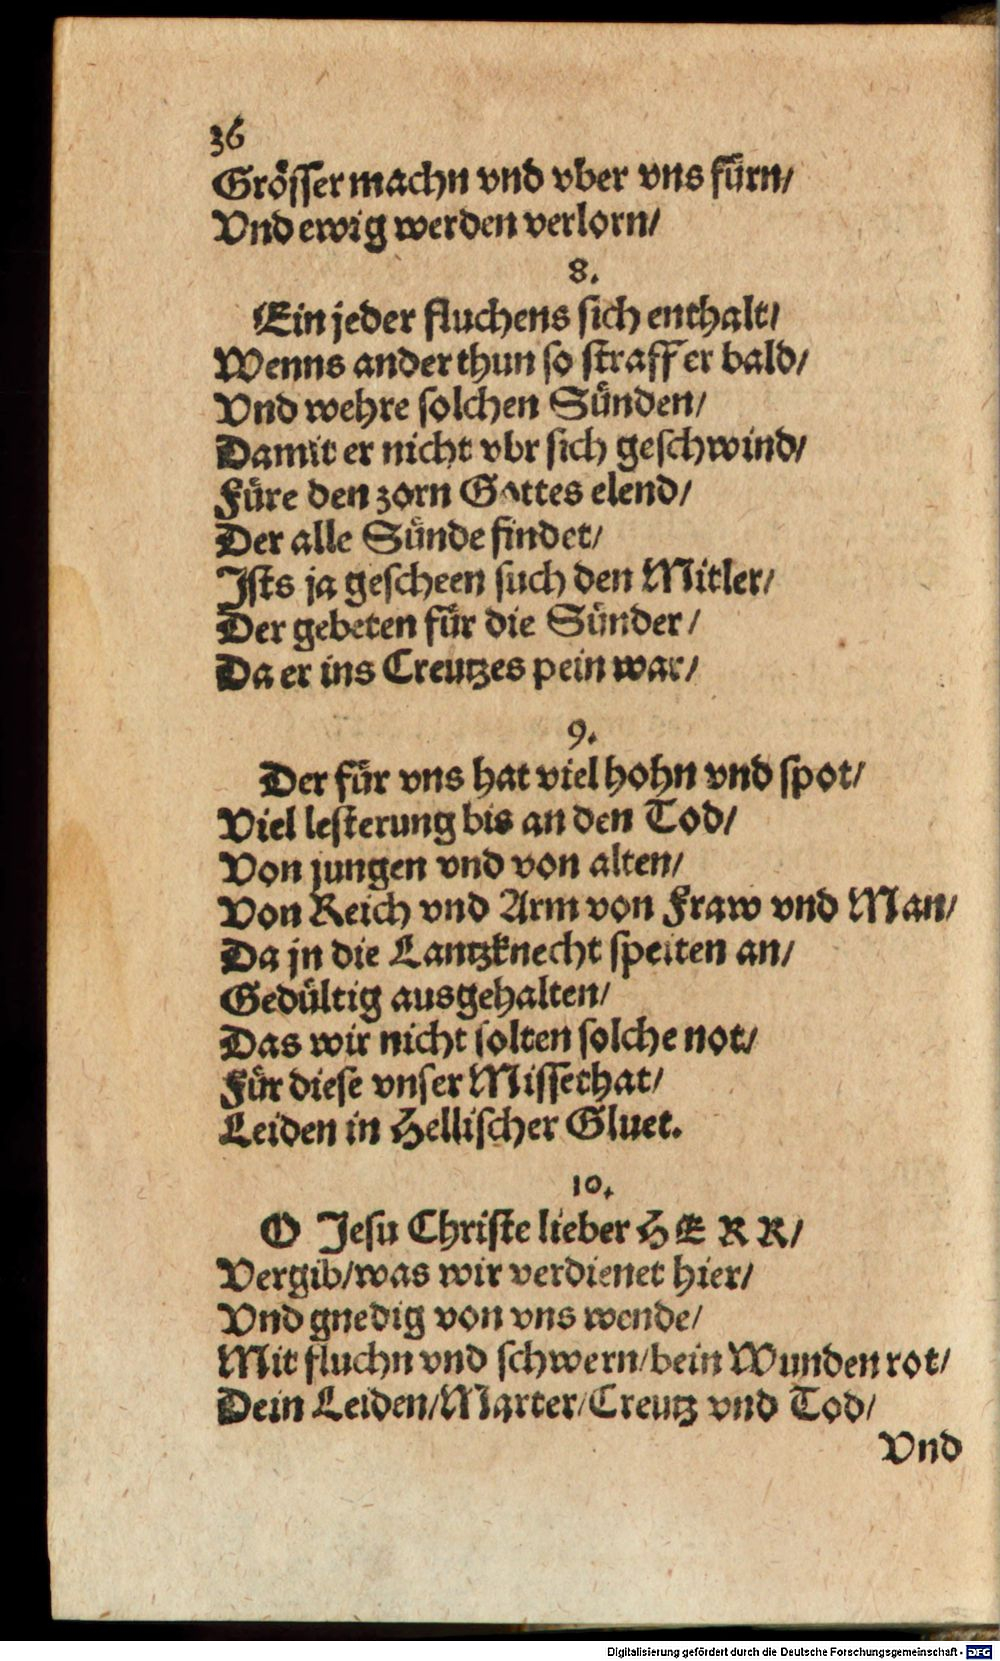 36
Grösser machn vnd vber vns fürn/
Vnd ewig werden verlorn/
8.
Ein jeder fluchens sich enthalt/
Wenns ander thun so straff er bald/
Vnd wehre solchen Sünden/
Damit er nicht vbr sich geschwind/
Füre den zorn Gottes elend/
Der alle Sünde findet/
Ists ja gescheen such den Mitler/
Der gebeten für die Sünder/
Da er ins Creutzes pein war/
9.
Der für vns hat viel hohn vnd spot/
Viel lesterung bis an den Tod/
Von jungen vnd von alten/
Von Reich vnd Arm von Fraw vnd Man/
Da jn die Lantzknecht speiten an/
Gedültig ausgehalten/
Das wir nicht solten solche not/
Für diese vnser Missethat/
Leiden in Hellischer Gluet.
10.
O Jesu Christe lieber HERR/
Vergib/was wir verdienet hier/
Vnd gnedig von vns wende/
Mit fluchn vnd schwern/bein Wunden rot/
Dein Leiden/Marter/Creutz vnd Tod/
Vnd
Digitalisierung gefördert durch die Deutsche Forschungsgemeinschaft - DFG